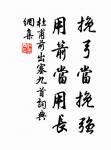 挽弓當挽強
用箭當用長
杜甫前出塞九首詞典
網集